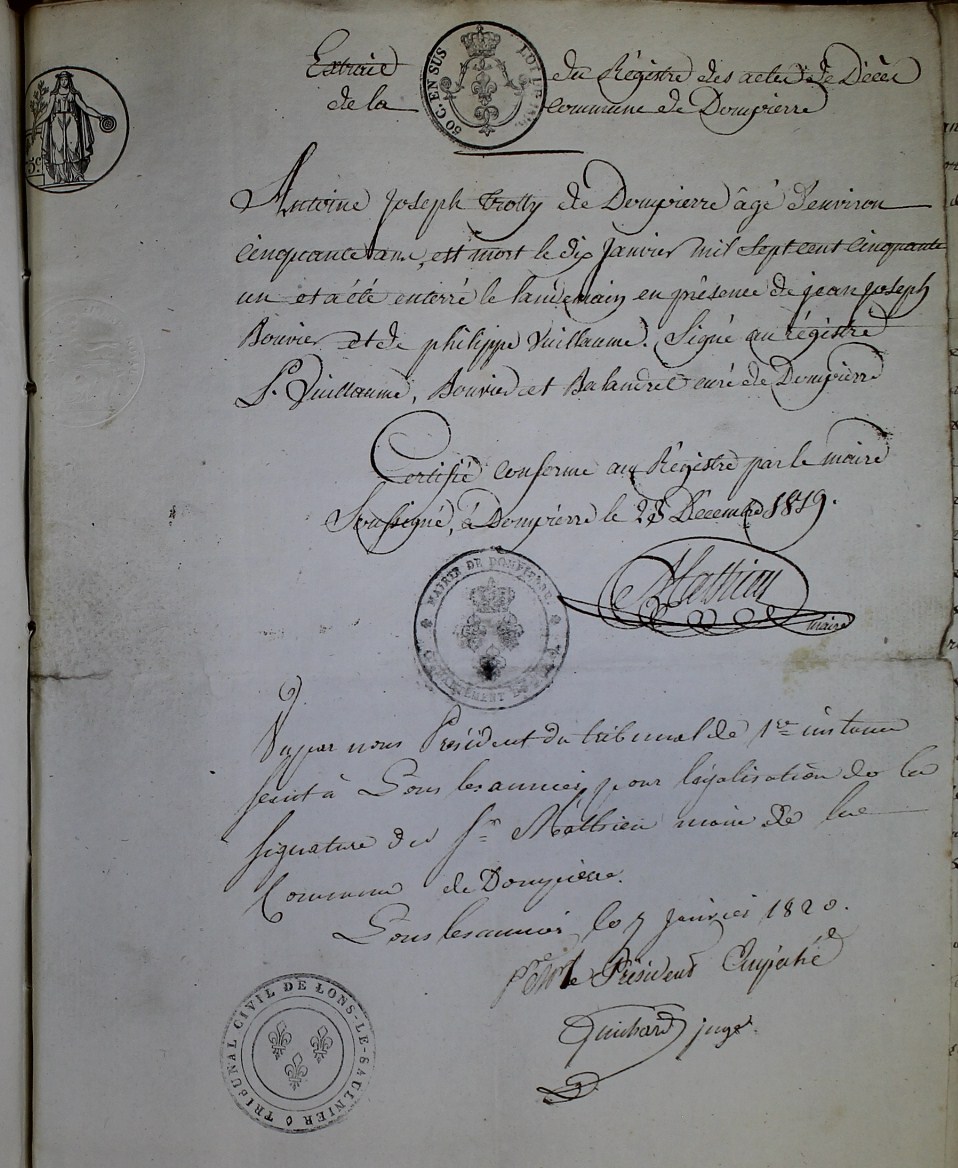 Extrait du Régistre des actes de Décès
de la commune de Dompierre
50 C. EN SUS
LOI DE 1816.
5c
Antoine Joseph Trolly de Dompierre âgé d'environ
cinquante ans, est mort le dix Janvier mil Sept cent Cinquante
un et a été enterré le landemain en présence de jean joseph
Bouvier et de philippe Vuillaume. Signé au régistre
P. Vuillaume, Bouvier et Balandret curé de Dompierre
Certifié conforme au Régistre par le maire
Soussigné, à Dompierre le 28 Décembre 1819.
Mathieu
maire
MAIRIE DE DOMPIERRE.
DÉPARTEMENT DU JURA
Vu par nous Président du tribunal de 1ere instance
séant à Lons lesaunier, pour légalisation de la
signature du Sr Mathieu maire de lae
Commune de Dompierre.
Lons lesaunier le 7 janvier 1820.
pr Mr le Président Empéché
Guibard juge
TRIBUNAL CIVIL DE LONS-LE-SAULNIER